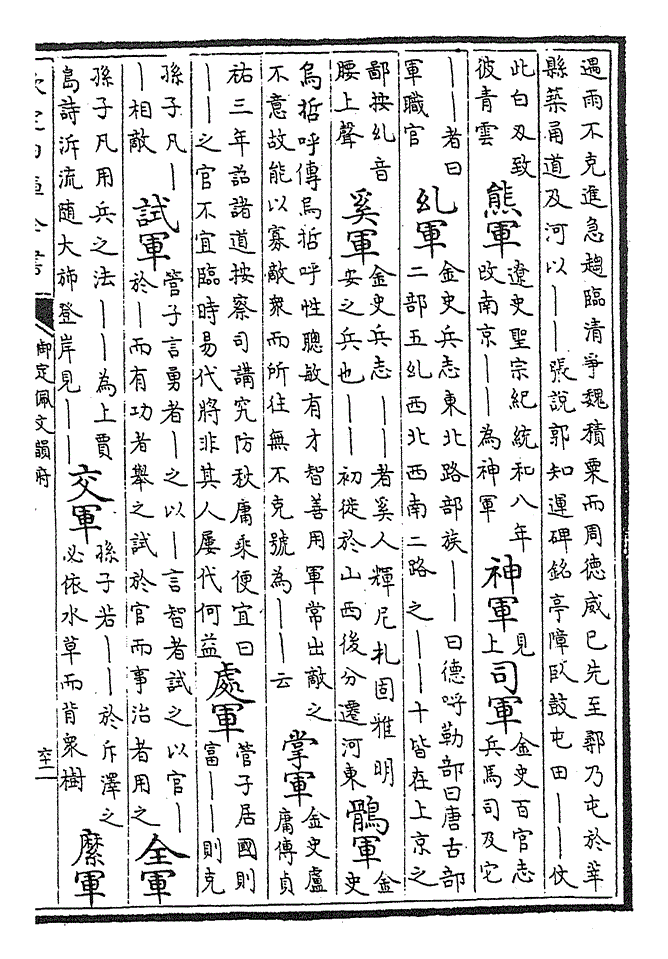 遇雨不克進急趨臨清爭魏積粟而周德威已先至鄩乃屯於莘
縣築甬道及河以——張說郭知運碑銘亭障臥鼓屯田——仗
此白刃致
彼青雲
熊軍
遼史聖宗紀統和八年
改南京——為神軍
神軍
見
上
司軍
金史百官志
兵馬司及它
——者曰
軍職官
乣軍
金史兵志東北路部族——曰德呼勒部曰唐古部
二部五乣西北西南二路之——十皆在上京之
鄙按乣音
腰上聲
奚軍
金史兵志——者奚人輝尼札固雅明
安之兵也——初徙於山西後分遷河東
鶻軍
金
史
烏哲呼傳烏哲呼性聰敏有才智善用軍常出敵之
不意故能以寡敵衆而所往無不克號為——云
掌軍
金史盧
庸傳貞
祐三年詔諸道按察司講究防秋庸乘便宜曰
——之官不宜臨時易代將非其人屢代何益
處軍
管子居國則
富——則克
孫子凡—
—相敵
試軍
管子言勇者—之以—言智者試之以官—
於—而有功者舉之試於官而事治者用之
全軍
孫子凡用兵之法——為上賈
島詩泝流隨大斾登岸見——
交軍
孫子若——於斥澤之
必依水草而背衆樹
縻軍
欽定四庫全書
御定佩文韻府